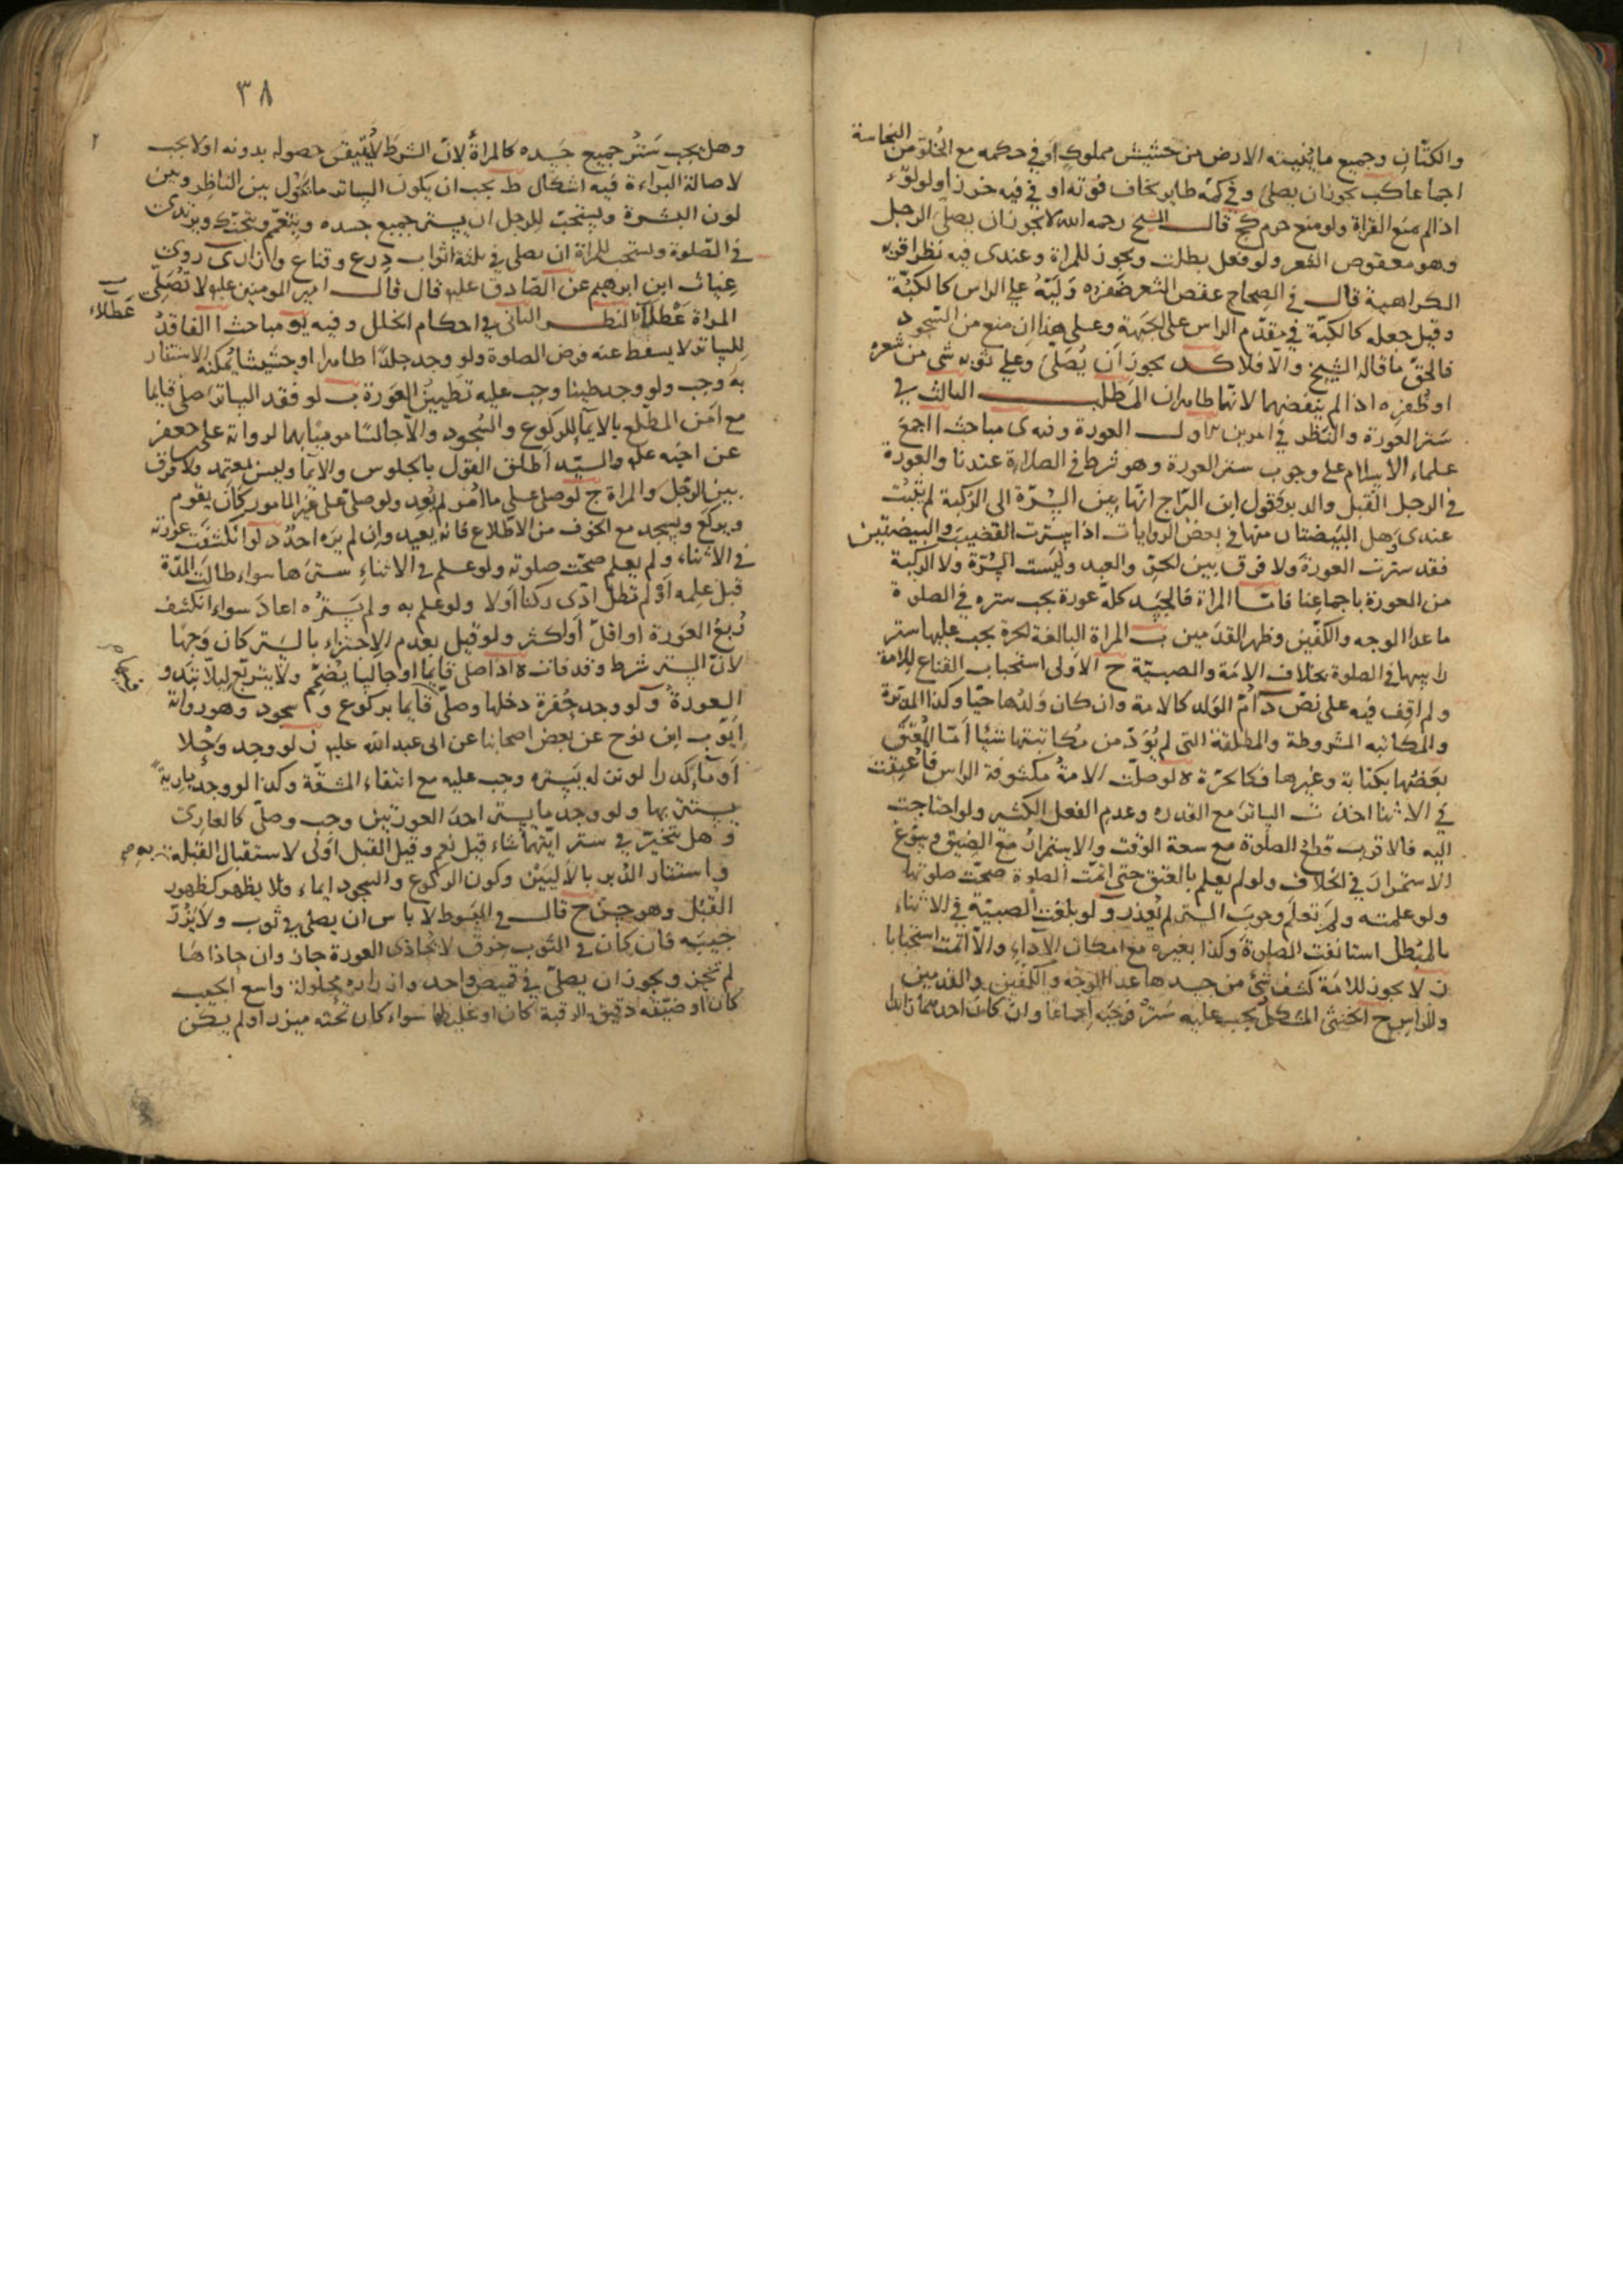 والكتان وجميع ما ينبته الارض من حشيش مملوك او في حكمه مع الخلو من النجاسة
اجماعا كب يجوز ان يصلي وفي كمه طاير يخاف فوته او في فيه خرز او لولوء
اذا لم يمنع القراة ولو منع حرم كج قال الشيخ رحمه الله لا يجوز ان يصلي الرجل
وهو معقوص الشعر ولو فعل بطلت ويجوز للمراة وعندي فيه نظر اقربه
الكراهية قال في الصحاح عقص الشعر ضفره وليه على الراس كالكبة
وقيل جعله كالكبة في مقدم الراس على الجبهة وعلى هذا ان منع من السجود
فالحق ما قاله الشيخ والا فلا كد يجوز ان يصلي وعلى ثوبه شي من شعره
او ظفره اذا لم ينفضهما لانهما طاهران المطلب الثالث في
ستر العورة والنظر في امرين الاول العورة وفيه ى مباحث ا اجمع
علماء الاسلام على وجوب ستر العورة وهو شرط في الصلاة عندنا والعورة
في الرجل القبل والدبر وقول ابن البراج انها من السرة الى الركبة لم يثبت
عندي وهل البيضتان منها في بعض الروايات اذا سترت القضيب والبيضتين
فقد سترت العورة ولا فرق بين الحر والعبد وليست السرة ولا الركبة
من العورة باجماعنا فاما المراة فالجسد كله عورة يجب ستره في الصلوة
ما عدا الوجه والكفين وظهر القدمين ب المراة البالغة الحرة يجب عليها ستر
راسها في الصلوة بخلاف الامة والصبية ج الاولى استحباب القناع للامة
ولم اقف فيه على نص د ام الولد كالامة وان كان ولدها حيا وكذا المدبرة
والمكاتبة المشروطة والمطلقة التي لم يؤد من مكاتبتها شيئا اما المعتق
بعضها بكتابة وغيرها فكالحرة ه لو صلت الامة مكشوفة الراس فاعتقت
في الاثنا اخذت الساتر مع القدره وعدم الفعل الكثير ولو احتاجت
اليه فالاقرب قطع الصلوة مع سعة الوقت والاستمرار مع الضيق وسوغ
الاستمرار في الخلاف ولو لم يعلم بالعتق حتى اتمت الصلوة صحت صلوتها
ولو علمته ولم تعلم وجوب الستر لم تعذر و لو بلغت الصبية في الاثناء
بالمبطل استانفت الصلوة وكذا بغيره مع امكان الاداء والا اتمت استحبابا
ز لا يجوز للامة كشف شئ من جسدها عدا الوجه والكفين والقدمين
والراس ح الخنثى المشكل يجب عليه ستر فرجيه اجماعا وان كان احدهما زايدا
٣٨
وهل يجب ستر جميع جسده كالمراة لان الشرط لا يتيقن حصوله بدونه او لا يجب
لاصالة البراءة فيه اشكال ط يجب ان يكون الساتر ما يحول بين الناظر وبين
لون البشرة ويستحب للرجل ان يستر جميع جسده ويتعمم ويتحنك ويرتدى
في الصلوة ويستحب للمراة ان يصلي في ثلثة اثواب درع وقناع وازار ى روى
غياث ابن ابرهيم عن الصادق عليه قال قال امير المومنين عليه لا تصلى
المراة عطلا النظر الثاني في احكام الخلل وفيه يو مباحث ا الفاقد
عطلاء
للساتر لا يسقط عنه فرض الصلوة ولو وجد جلدا طاهرا او حشيشا يمكنه الاستتار
به وجب ولو وجد طينا وجب عليه تطيين العورة ب لو فقد الساتر صلى قايما
مع امن المطلع بالايماء للركوع والسجود والا جالسا موميا بهما لرواية على جعفر
عن اخيه عليه والسيد اطلق القول بالجلوس والايما وليس بمعتمد ولا فرق
بين الرجل والمراة ج لو صلى على ما امر لم يعد ولو صلى على غير المامور كان يقوم
ويركع ويسجد مع الخوف من الاطلاع فانه يعيد وان لم يره احد د لو انكشفت عورته
في الاثناء ولم يعلم صحت صلوته ولو علم في الاثناء سترها سواء طالت المدة
قبل علمه او لم تطل ادى ركنا او لا ولو علم به ولم يستره اعاد سواء انكشف
ربع العورة او اقل او اكثر ولو قيل بعدم الاجتزاء بالستر كان وجها
لان الستر شرط وقد فات ه اذا صلى قايما او جالسا يضم ولا يتربع ليلا تبدو
العورة و لو وجد حفرة دخلها وصلى قايما بركوع وسجود وهو رواية
ايوب ابن نوح عن بعض اصحابنا عن ابى عبدالله عليه ز لو وجد وحلا
او ماء كدرا لو نزله يستره وجب عليه مع انتفاء المشقة وكذا لو وجد بارية
يستتر بها ولو وجد ما يستر احد العورتين وجب وصلى كالعارى
وهل يتخير في ستر ايتهما شاء قيل نعم وقيل القبل اولى لاستقبال القبلة به
واستتار الدبر بالاليين وكون الركوع والسجود ايماء فلا يظهر كظهور
القبل وهو حسن ح قال في المبسوط لا باس ان يصلي في ثوب ولا يزر
جيبه فان كان في الثوب خرق لا تحاذى العورة جاز وان حاذاها
لم تجز ويجوز ان يصلى في قميص واحد وازراره محلولة واسع الجيب
كان او ضيقه دقيق الرقبة كان او غليظها سواء كان تحته ميزر او لم يكن